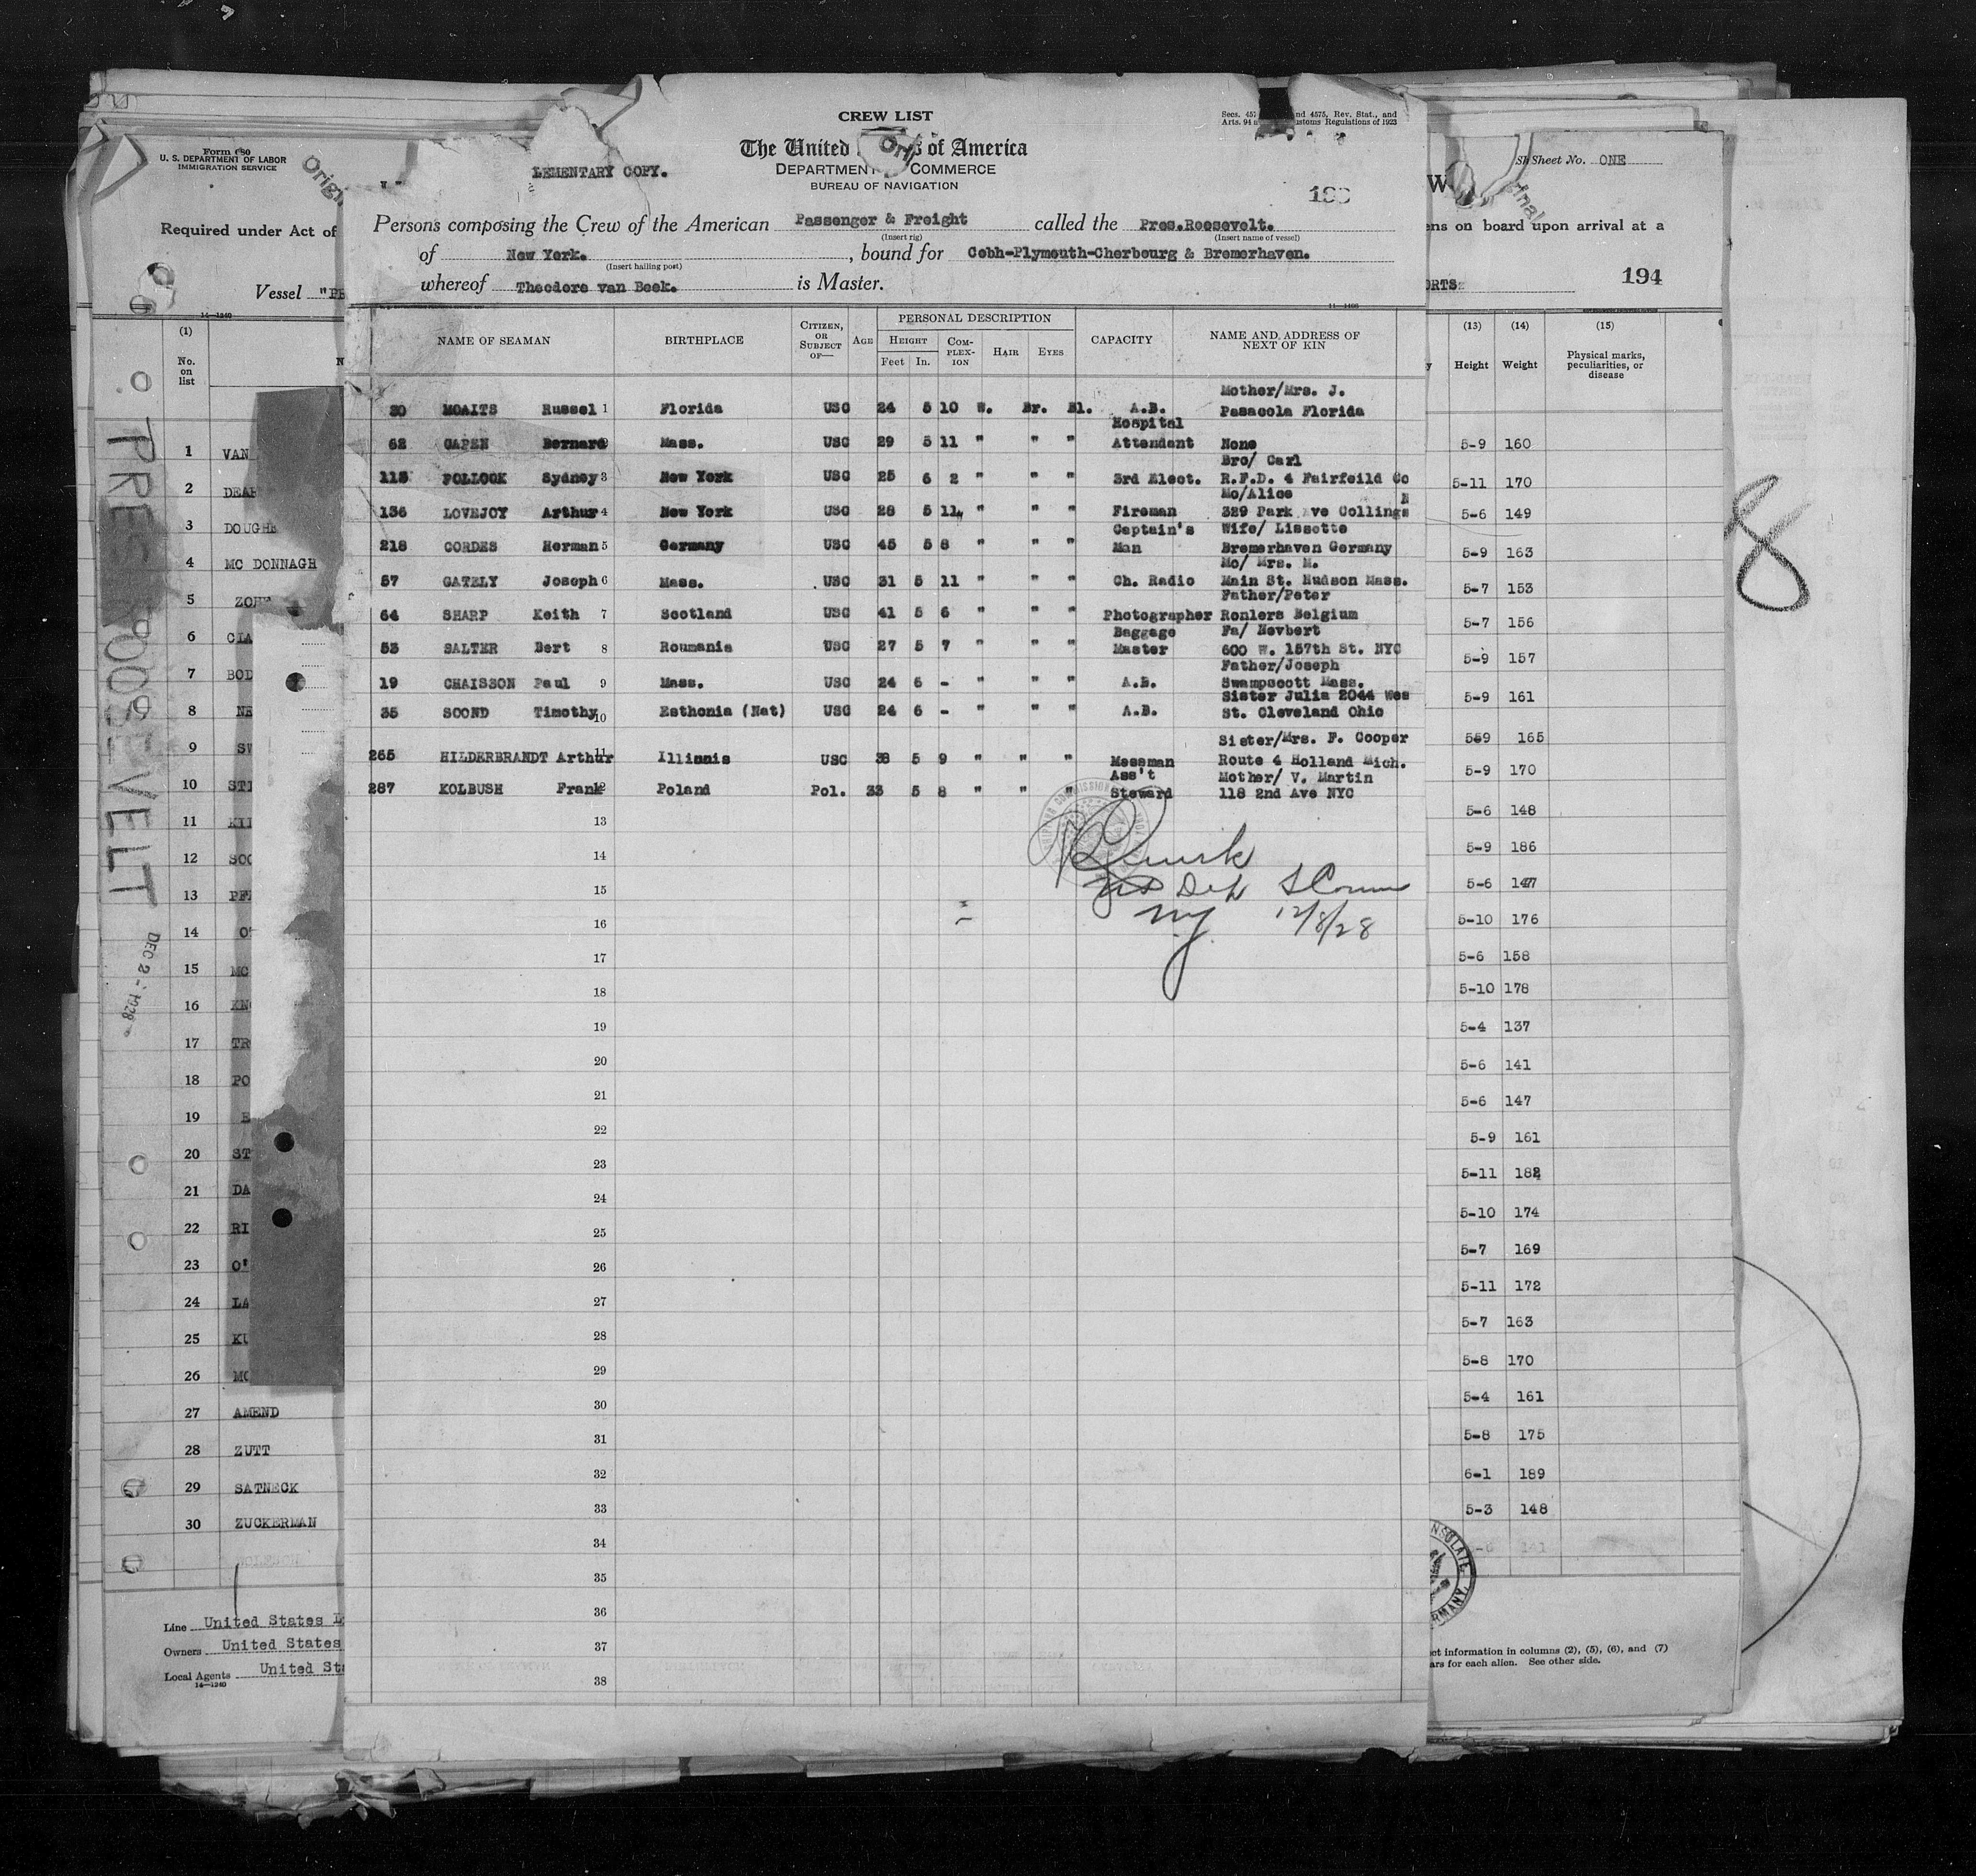 CREW LIST
The United s of America
DEPARTMENT COMMERCE
BUREAU OF NAVIGATION
LEMENTARY COPY.
Secs. 457 nd 4575, Rev. Stat., and
Arts. 94 ustoms Regulations of 1923
Persons composing the Crew of the American Passenger & Freight called the Pres.Roosevelt.
(Insert rig) (Insert name of vessel)
of New York. , bound for Cobh-Plymouth-Cherbourg & Bremerhaven.
(Insert hailing port)
whereof Theodore van Beek. is Master.
NAME OF SEAMAN BIRTHPLACE CITIZEN, OR SUBJECT OF— AGE PERSONAL DESCRIPTION CAPACITY NAME AND ADDRESS OF NEXT OF KIN
HEIGHT COM-PLEX-ION HAIR EYES
Feet In.
Mother/Mrs. J.
30 MOAITS Russel 1 Florida USC 24 5 10 W. Br. Bl. A.B. Pasacola Florida
Hospital
62 CAPEN Bernard 2 Mass. USC 29 5 11 " " " Attendant None
Bro/ Carl
115 POLLOCK Sydney 3 New York USC 25 6 2 " " " 3rd Elect. R.F.D. 4 Fairfeild Co
Mo/Alice N
136 LOVEJOY Arthur 4 New York USC 28 5 11 " " " Fireman 329 Park Ave Collings
Captain's Wife/ Lissette
218 CORDES Herman 5 Germany USC 45 5 8 " " " Man Bremerhaven Germany
Mo/ Mrs. M.
57 GATELY Joseph 6 Mass. USC 31 5 11 " " " Ch. Radio Main St. Hudson Mass.
Father/Peter
64 SHARP Keith 7 Scotland USC 41 5 6 " " " Photographer Ronlers Belgium
Baggage Fa/ Hevbert
53 SALTER Bert 8 Roumania USC 27 5 7 " " " Master 600 W. 157th St. NYC
Father/Joseph
19 CHAISSON Paul 9 Mass. USC 24 6 - " " " A.B. Swampscott Mass.
Sister Julia 2044 Wes
35 SOOND Timothy 10 Esthonia (Nat) USC 24 6 - " " " A.B. St. Cleveland Ohio
Sister/Mrs. F. Cooper
265 HILDERBRANDT Arthur 11 Illinois USC 38 5 9 " " " Messman Route 4 Holland Mich.
Ass't Mother/ V. Martin
287 KOLBUSH Frank 12 Poland Pol. 33 5 8 " " " Steward 118 2nd Ave NYC
13
14
15
16
17
18
19
20
21
22
23
24
25
26
27
28
29
30
31
32
33
34
35
36
37
38
US Dep S Comm
NY 12/8/28
Form 680
U. S. DEPARTMENT OF LABOR
IMMIGRATION SERVICE
Required under Act of
Vessel "PR
14—1240
(1)
No. on list
1 VAN
2 DEAR
3 DOUGHE
4 MC DONNAGH
5
6
7 BOD
8 NE
9 SW
10 STI
11
12 SOO
13
14 O'
15 MC
16 KN
17 TR
18 PO
19
20 ST
21 DA
22 RI
23 O'
24 LA
25 KU
26 MC
27 AMEND
28 ZUTT
29 SATNECK
30 ZUCKERMAN
Line United States
Owners United States
Local Agents United St
14—1240
PRES ROOSEVELT
DEC 2 - 1928
Sheet No. ONE
ens on board upon arrival at a
ORTS
194
(13) (14) (15)
Height Weight Physical marks, peculiarities, or disease
5-9 160
5-11 170
5-6 149
5-9 163
5-7 153
5-7 156
5-9 157
5-9 161
559 165
5-9 170
5-6 148
5-9 186
5-6 147
5-10 176
5-6 158
5-10 178
5-4 137
5-6 141
5-6 147
5-9 161
5-11 182
5-10 174
5-7 169
5-11 172
5-7 163
5-8 170
5-4 161
5-8 175
6-1 189
5-3 148
ct information in columns (2), (5), (6), and (7)
ars for each alien. See other side.
8